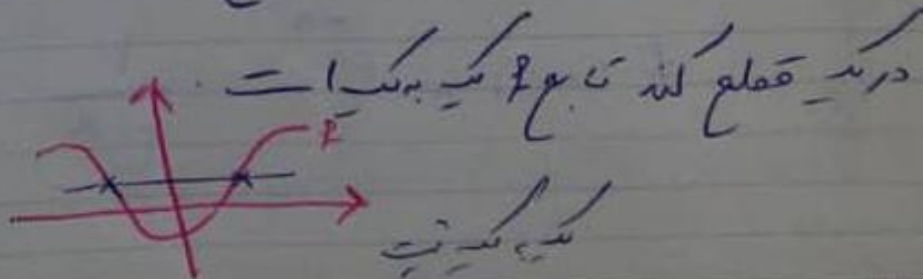 در یک قطع کند تابع f یک به یک است.
f
یک به یک نیست